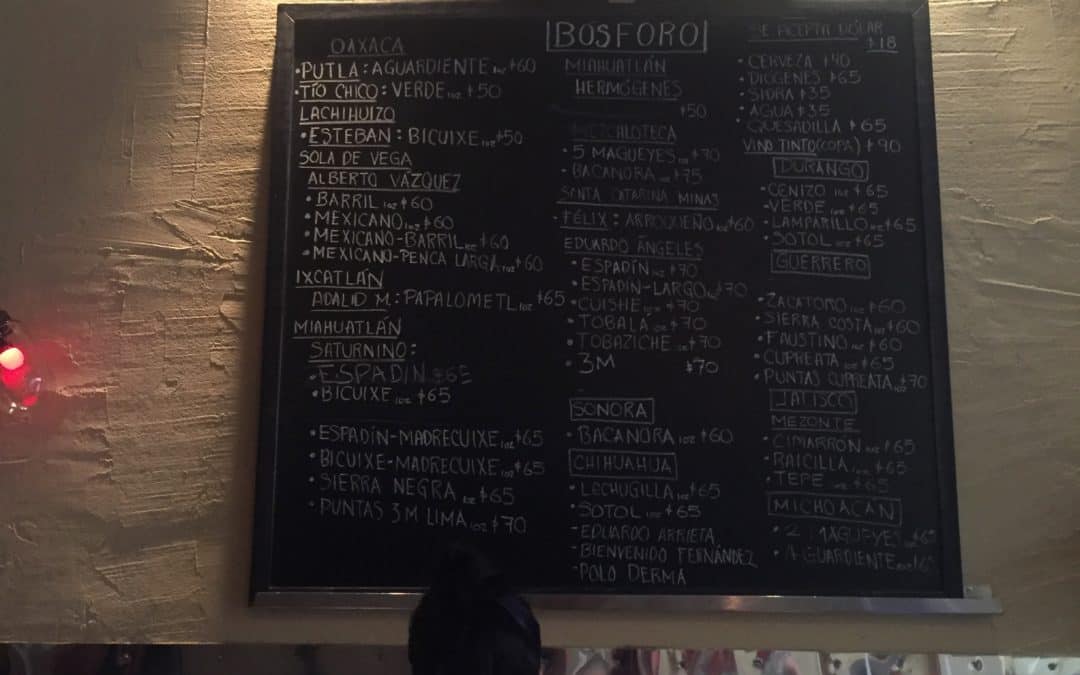 OAXACA
• PUTLA: AGUARDIENTE 1oz $60
• TÍO CHICO: VERDE 1oz $50
LACHIHUIZO
• ESTEBAN: BICUIXE 1oz $50
SOLA DE VEGA
ALBERTO VÁZQUEZ
• BARRIL 1oz $60
• MEXICANO 1oz $60
• MEXICANO-BARRIL 1oz $60
• MEXICANO-PENCA LARGA 1oz $60
IXCATLÁN
ADALID M.: PAPALOMETL 1oz $65
MIAHUATLÁN
SATURNINO:
• ESPADÍN $65
• BICUIXE 1oz $65
• ESPADÍN-MADRECUIXE 1oz $65
• BICUIXE-MADRECUIXE 1oz $65
• SIERRA NEGRA 1oz $65
• PUNTAS 3M LIMA 1oz $70
BÓSFORO
MIAHUATLÁN
HERMÓGENES
$50
MEZCALOTECA
• 5 MAGUEYES 1oz $70
• BACANORA 1oz $75
SANTA CATARINA MINAS
• FÉLIX: ARROQUEÑO 1oz $60
EDUARDO ÁNGELES
• ESPADÍN 1oz $70
• ESPADÍN-LARGO 1oz $70
• CUISHE 1oz $70
• TOBALÁ 1oz $70
• TOBAZICHE 1oz $70
• 3M $70
SONORA
• BACANORA 1oz $60
CHIHUAHUA
• LECHUGILLA 1oz $65
• SOTOL 1oz $65
- EDUARDO ARRIETA
- BIENVENIDO FERNÁNDEZ
- POLO DERMA
SE ACEPTA DÓLAR
$18
• CERVEZA $40
• DIÓGENES $65
• SIDRA $35
• AGUA $35
• QUESADILLA $65
VINO TINTO (COPA) $90
DURANGO
• CENIZO 1oz $65
• VERDE 1oz $65
• LAMPARILLO 1oz $65
• SOTOL 1oz $65
GUERRERO
• ZACATORO 1oz $60
• SIERRA COSTA 1oz $60
• FAUSTINO 1oz $60
• CUPREATA 1oz $65
• PUNTAS CUPREATA 1oz $70
JALISCO
MEZONTE
• CIMARRON 1oz $65
• RAICILLA 1oz $65
• TEPE 1oz $65
MICHOACÁN
• 2 MAGUEYES
• AGUARDIENTE